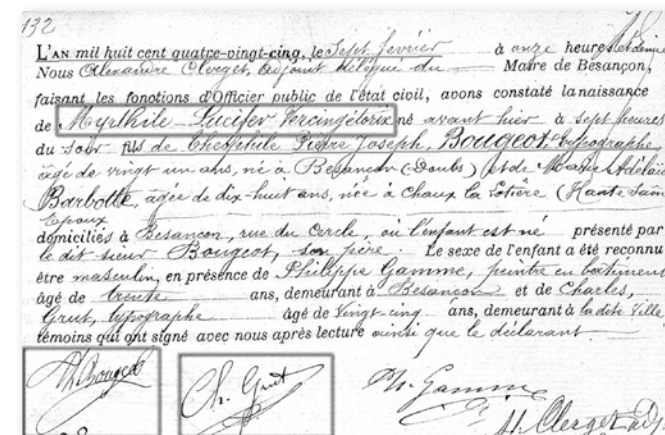 132
L'AN mil huit cent quatre-vingt-cinq, le Sept février à onze heures et demie
Nous Alexandre Clerget, Adjoint délégué du Maire de Besançon,
faisant les fonctions d'Officier public de l'état civil, avons constaté la naissance
de Myrthile Lucifer Vercingétorix né avant hier à sept heures
du soir fils de Théophile Pierre Joseph, Bougeot, typographe,
âgé de vingt un ans, né à Besançon (Doubs) et de Marie Adélaï
Barbotte, âgée de dix-huit ans, née à Chaux la Lotière (Haute Saôn
Epoux
domiciliés à Besançon, rue du Cercle, où l'enfant est né présenté par
le dit sieur Bougeot, son père. Le sexe de l'enfant a été reconnu
être masculin, en présence de Philippe Gamme, peintre en bâtiment
âgé de trente ans, demeurant à Besançon et de Charles,
Grut, typographe âgé de Vingt-cinq ans, demeurant à la dite Ville
témoins qui ont signé avec nous après lecture ainsi que le déclarant
Th Bougeot Ch. Grut Ph. Gamme
Al. Clerget adj